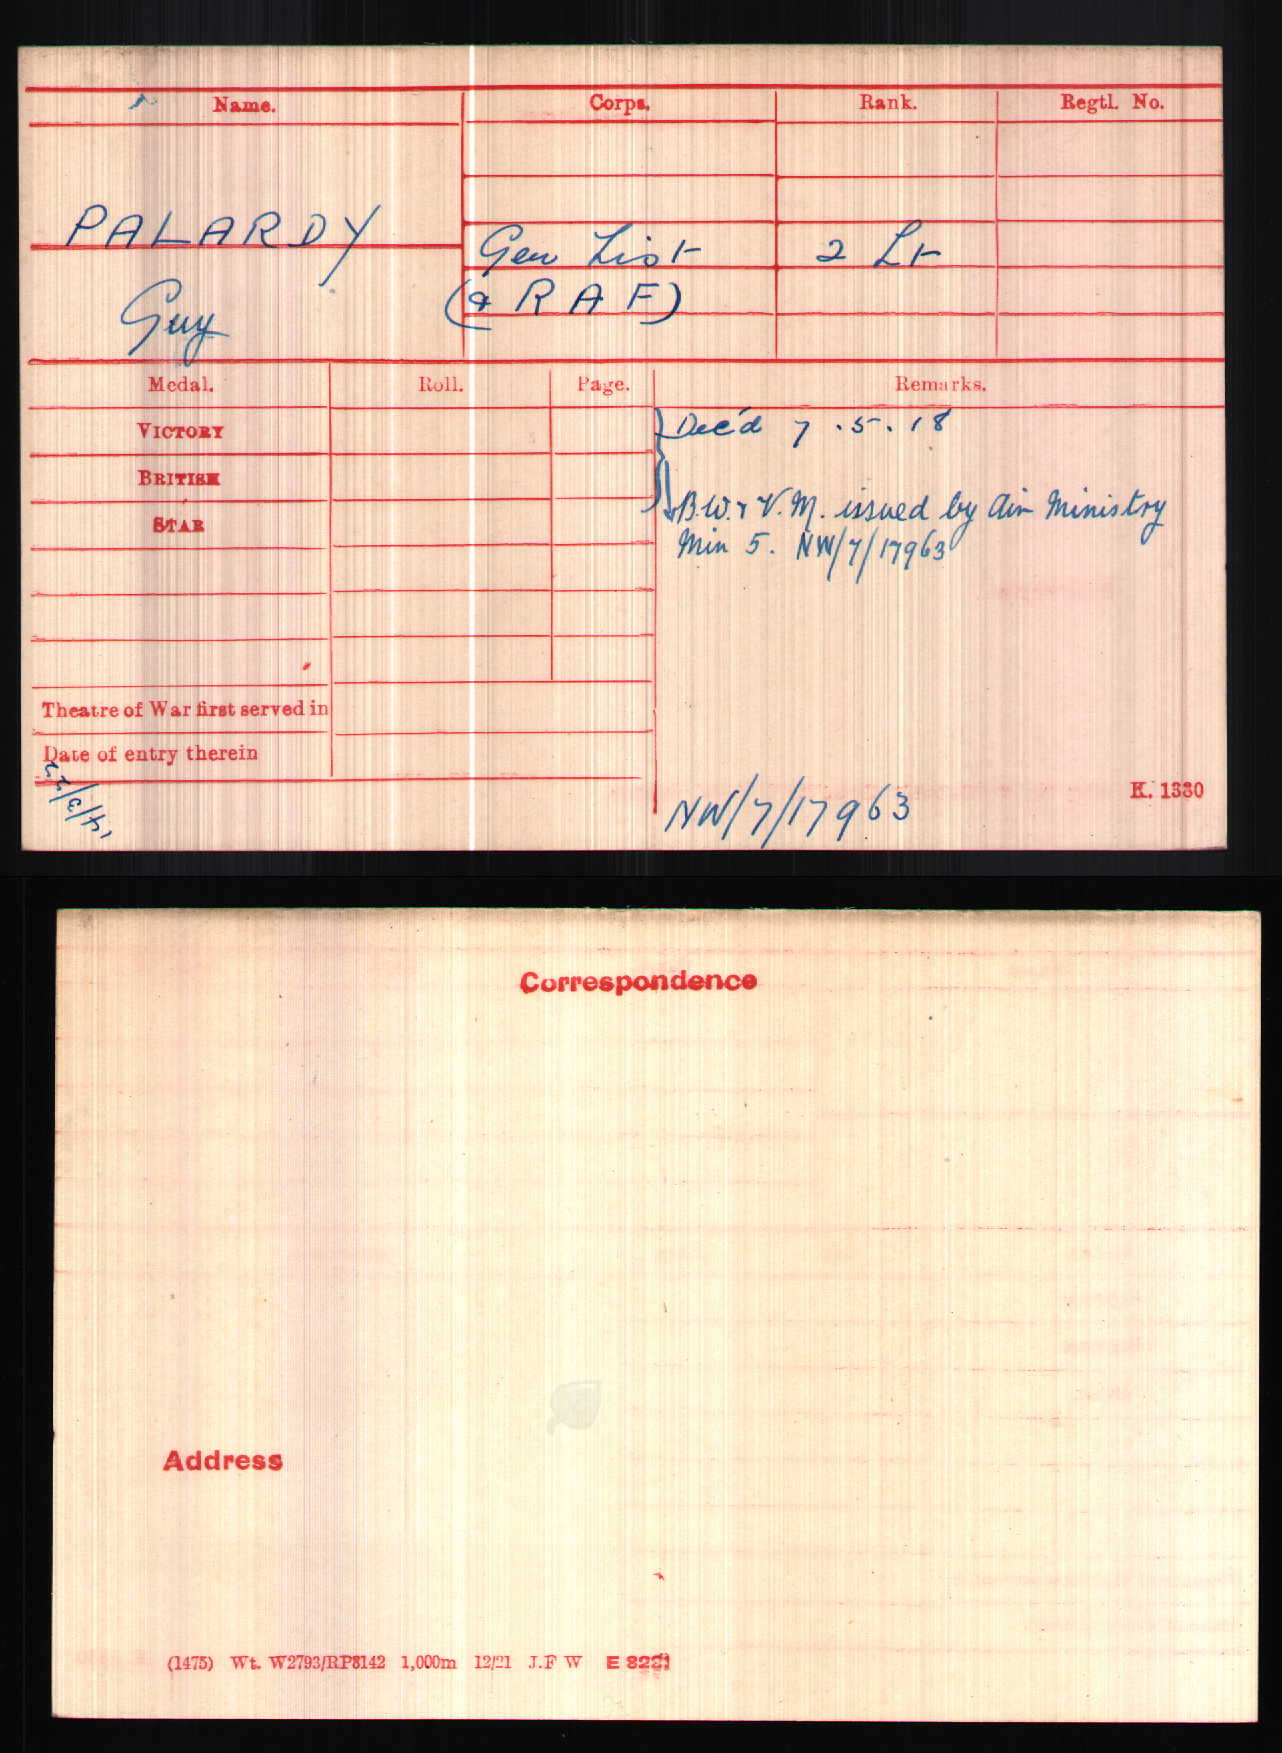 Name. Corps. Rank. Regtl. No.
PALARDY
Guy
Gen List 2 Lt
(& RAF)
Medal. Roll. Page. Remarks.
VICTORY
BRITISH
STAR
Dec'd 7.5.18
B.W. & V.M. issued by Air Ministry
Min 5. NW/7/17963
Theatre of War first served in
Date of entry therein
14/3/22
NW/7/17963
K. 1380
Correspondence
Address
(1475) Wt. W2793/RP8142 1,000m 12/21 J.F W